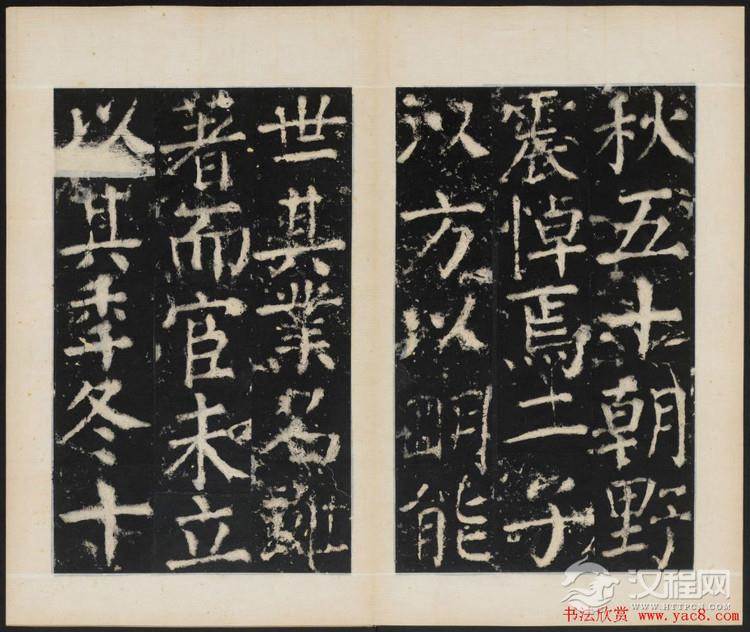 秋五十朝野
震悼焉二子
以方以明能
世其業名雖
著而宦未立
以其季冬十
汉程网
WWW.HTTPCN.COM
书法欣赏 www.yac8.com